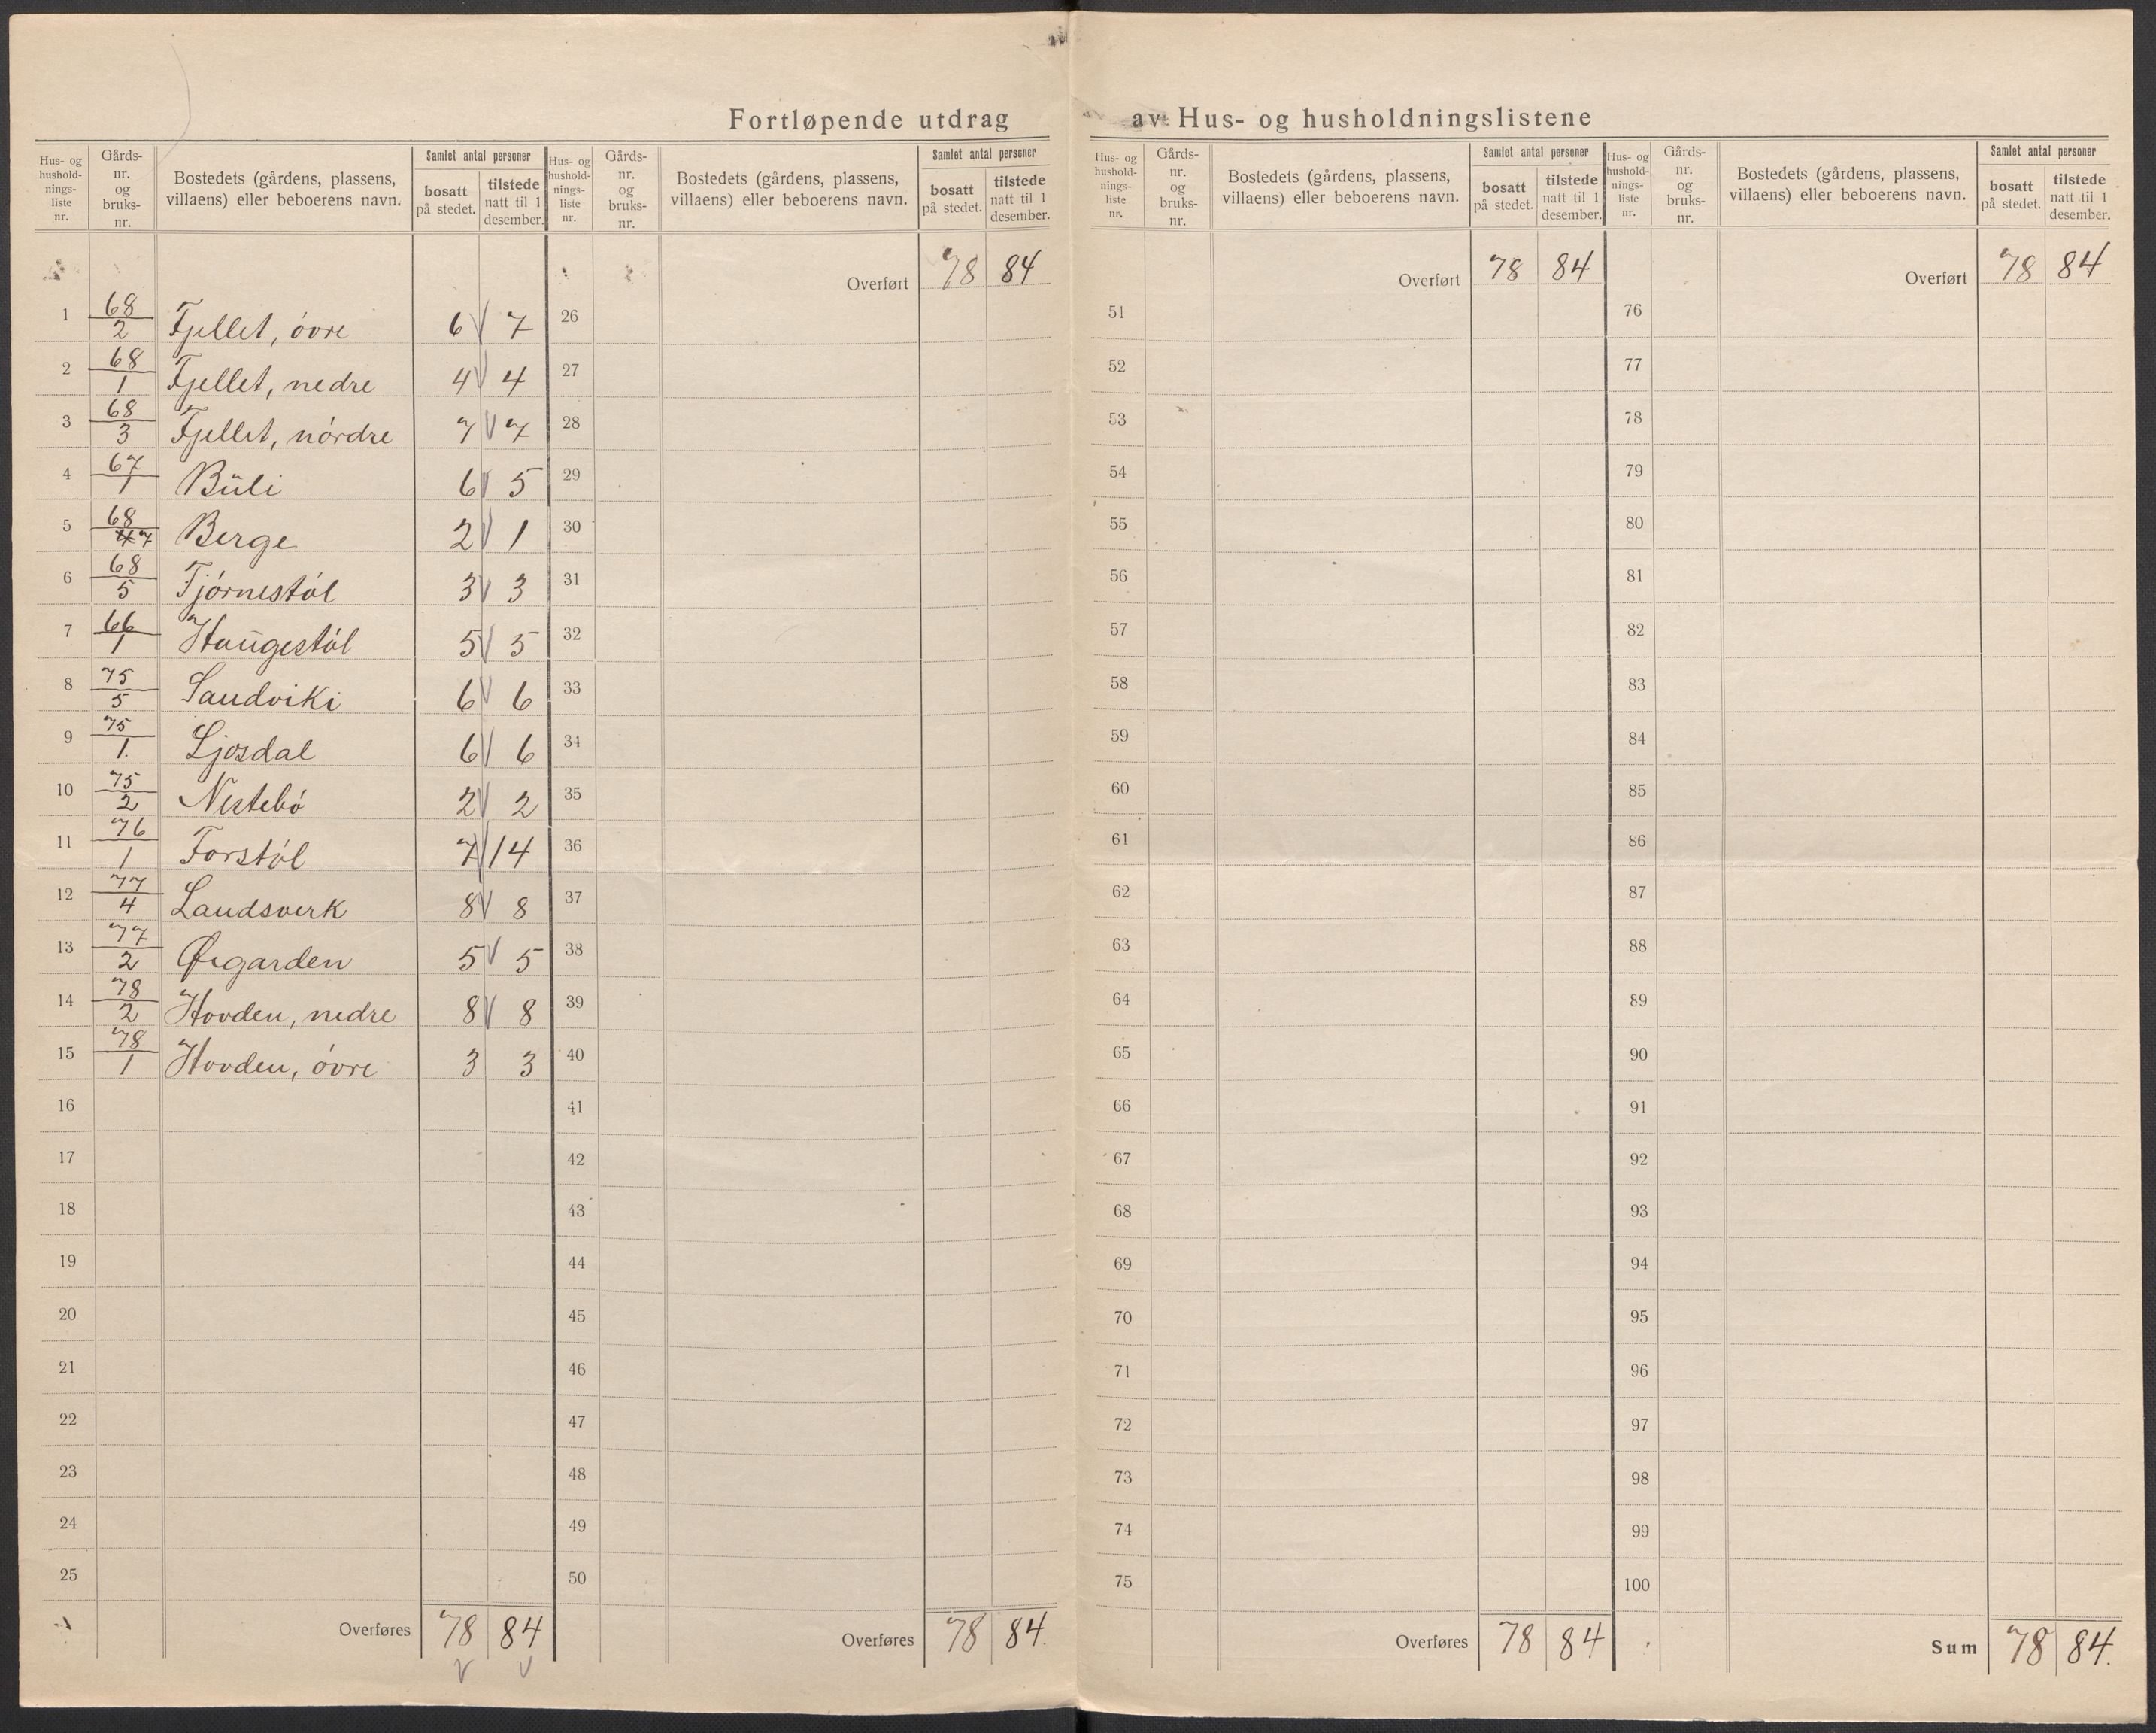 Fortløpende utdrag av Hus- og husholdningslistene
Hus- og husholdnings-liste nr. | Gårds-nr. og bruks-nr. | Bostedets (gårdens, plassens, villaens) eller beboerens navn. | Samlet antal personer | bosatt på stedet. | tilstede natt til 1 desember.
1 | 68/2 | Fjellet, övre | 6 | 7
2 | 68/1 | Fjellet, nedre | 4 | 4
3 | 68/3 | Fjellet, nördre | 7 | 7
4 | 67/1 | Büli | 6 | 5
5 | 68/7 | Berge | 2 | 1
6 | 68/5 | Tjörnestöl | 3 | 3
7 | 66/1 | Haugestöl | 5 | 5
8 | 75/5 | Sandviki | 6 | 6
9 | 75/1. | Ljosdal | 6 | 6
10 | 75/2 | Nestebö | 2 | 2
11 | 76/1 | Forstöl | 7 | 14
12 | 77/4 | Landsverk | 8 | 8
13 | 77/2 | Øigarden | 5 | 5
14 | 78/2 | Hovden, nedre | 8 | 8
15 | 78/1 | Hovden, övre | 3 | 3
16
17
18
19
20
21
22
23
24
25
Overføres | 78 | 84
Hus- og hushold-nings-liste nr. | Gårds-nr. og bruks-nr. | Bostedets (gårdens, plassens, villaens) eller beboerens navn. | Samlet antal personer | bosatt på stedet. | tilstede natt til 1 desember.
Overført | 78 | 84
26
27
28
29
30
31
32
33
34
35
36
37
38
39
40
41
42
43
44
45
46
47
48
49
50
Overføres | 78 | 84.
Hus- og hushold-nings-liste nr. | Gårds-nr. og bruks-nr. | Bostedets (gårdens, plassens, villaens) eller beboerens navn. | Samlet antal personer | bosatt på stedet. | tilstede natt til 1 desember.
Overført | 78 | 84
51
52
53
54
55
56
57
58
59
60
61
62
63
64
65
66
67
68
69
70
71
72
73
74
75
Overføres | 78 | 84.
Hus- og hushold-nings-liste nr. | Gårds-nr. og bruks-nr. | Bostedets (gårdens, plassens, villaens) eller beboerens navn. | Samlet antal personer | bosatt på stedet. | tilstede natt til 1 desember.
Overført | 78 | 84
76
77
78
79
80
81
82
83
84
85
86
87
88
89
90
91
92
93
94
95
96
97
98
99
100
Sum | 78 | 84.